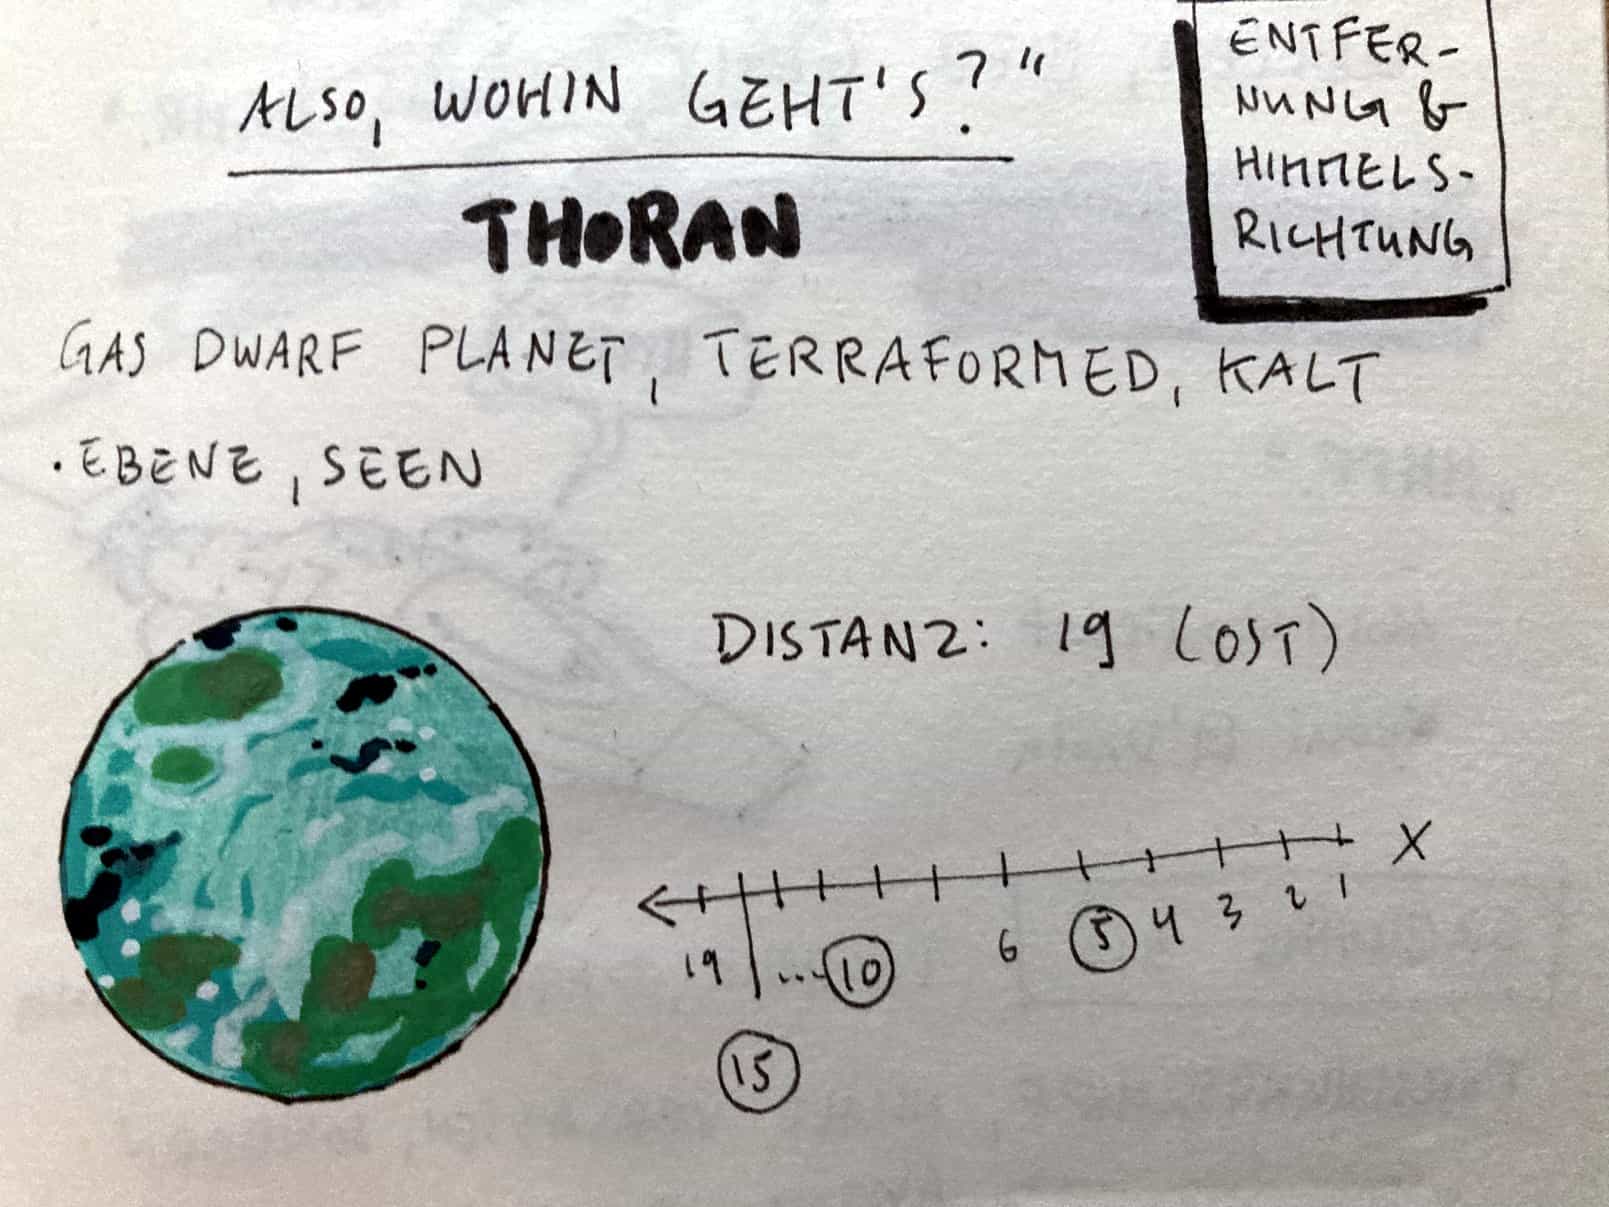 ALSO, WOHIN GEHT'S?"
ENTFER-
NUNG &
HIMMELS-
RICHTUNG
THORAN
GAS DWARF PLANET, TERRAFORMED, KALT
· EBENE, SEEN
DISTANZ: 19 (OST)
X
19 ... 10 6 5 4 3 2 1
15